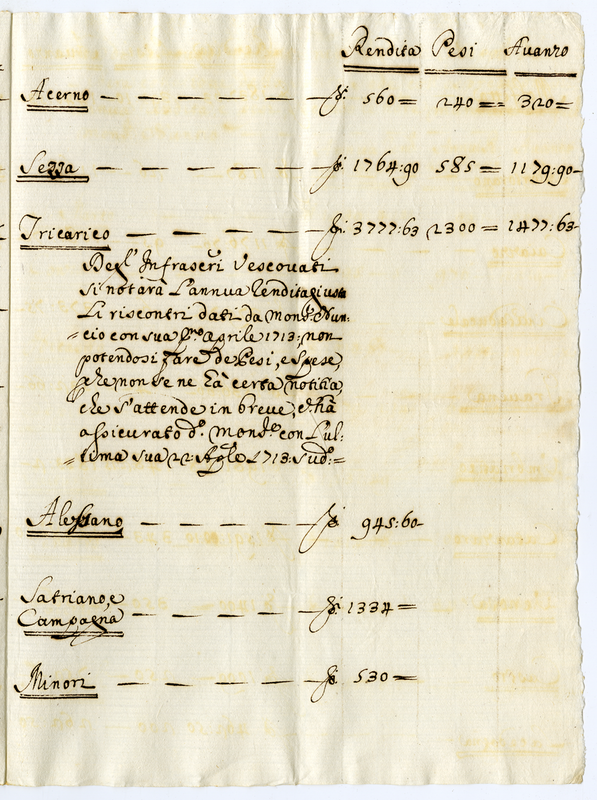 Rendita Pesi Avanzo
Acerno — — — — — 560= 240= 320=
Sezza — — — — — 1764:90 585= 1179:90-
Tricarico — — — — 3777:63 2300= 1477:63-
Degl' Infrascrti Vescovati
si notarà l'annua Rendita giusta
li riscontri dati da Monsr. Nun:
=cio con sua pmo. aprile 1713: non
potendosi fare de Pesi, e Spese,
che non se ne hà certa notitia,
che s'attende in breve, e hà
assicurato do. Monsre. con l'ul:
=tima sua 22: Aple 1713: sudo:=
Alessano — — — — — 945:60-
Satriano, e
Campagna — — — — 1334=
Minori — — — — — 530=